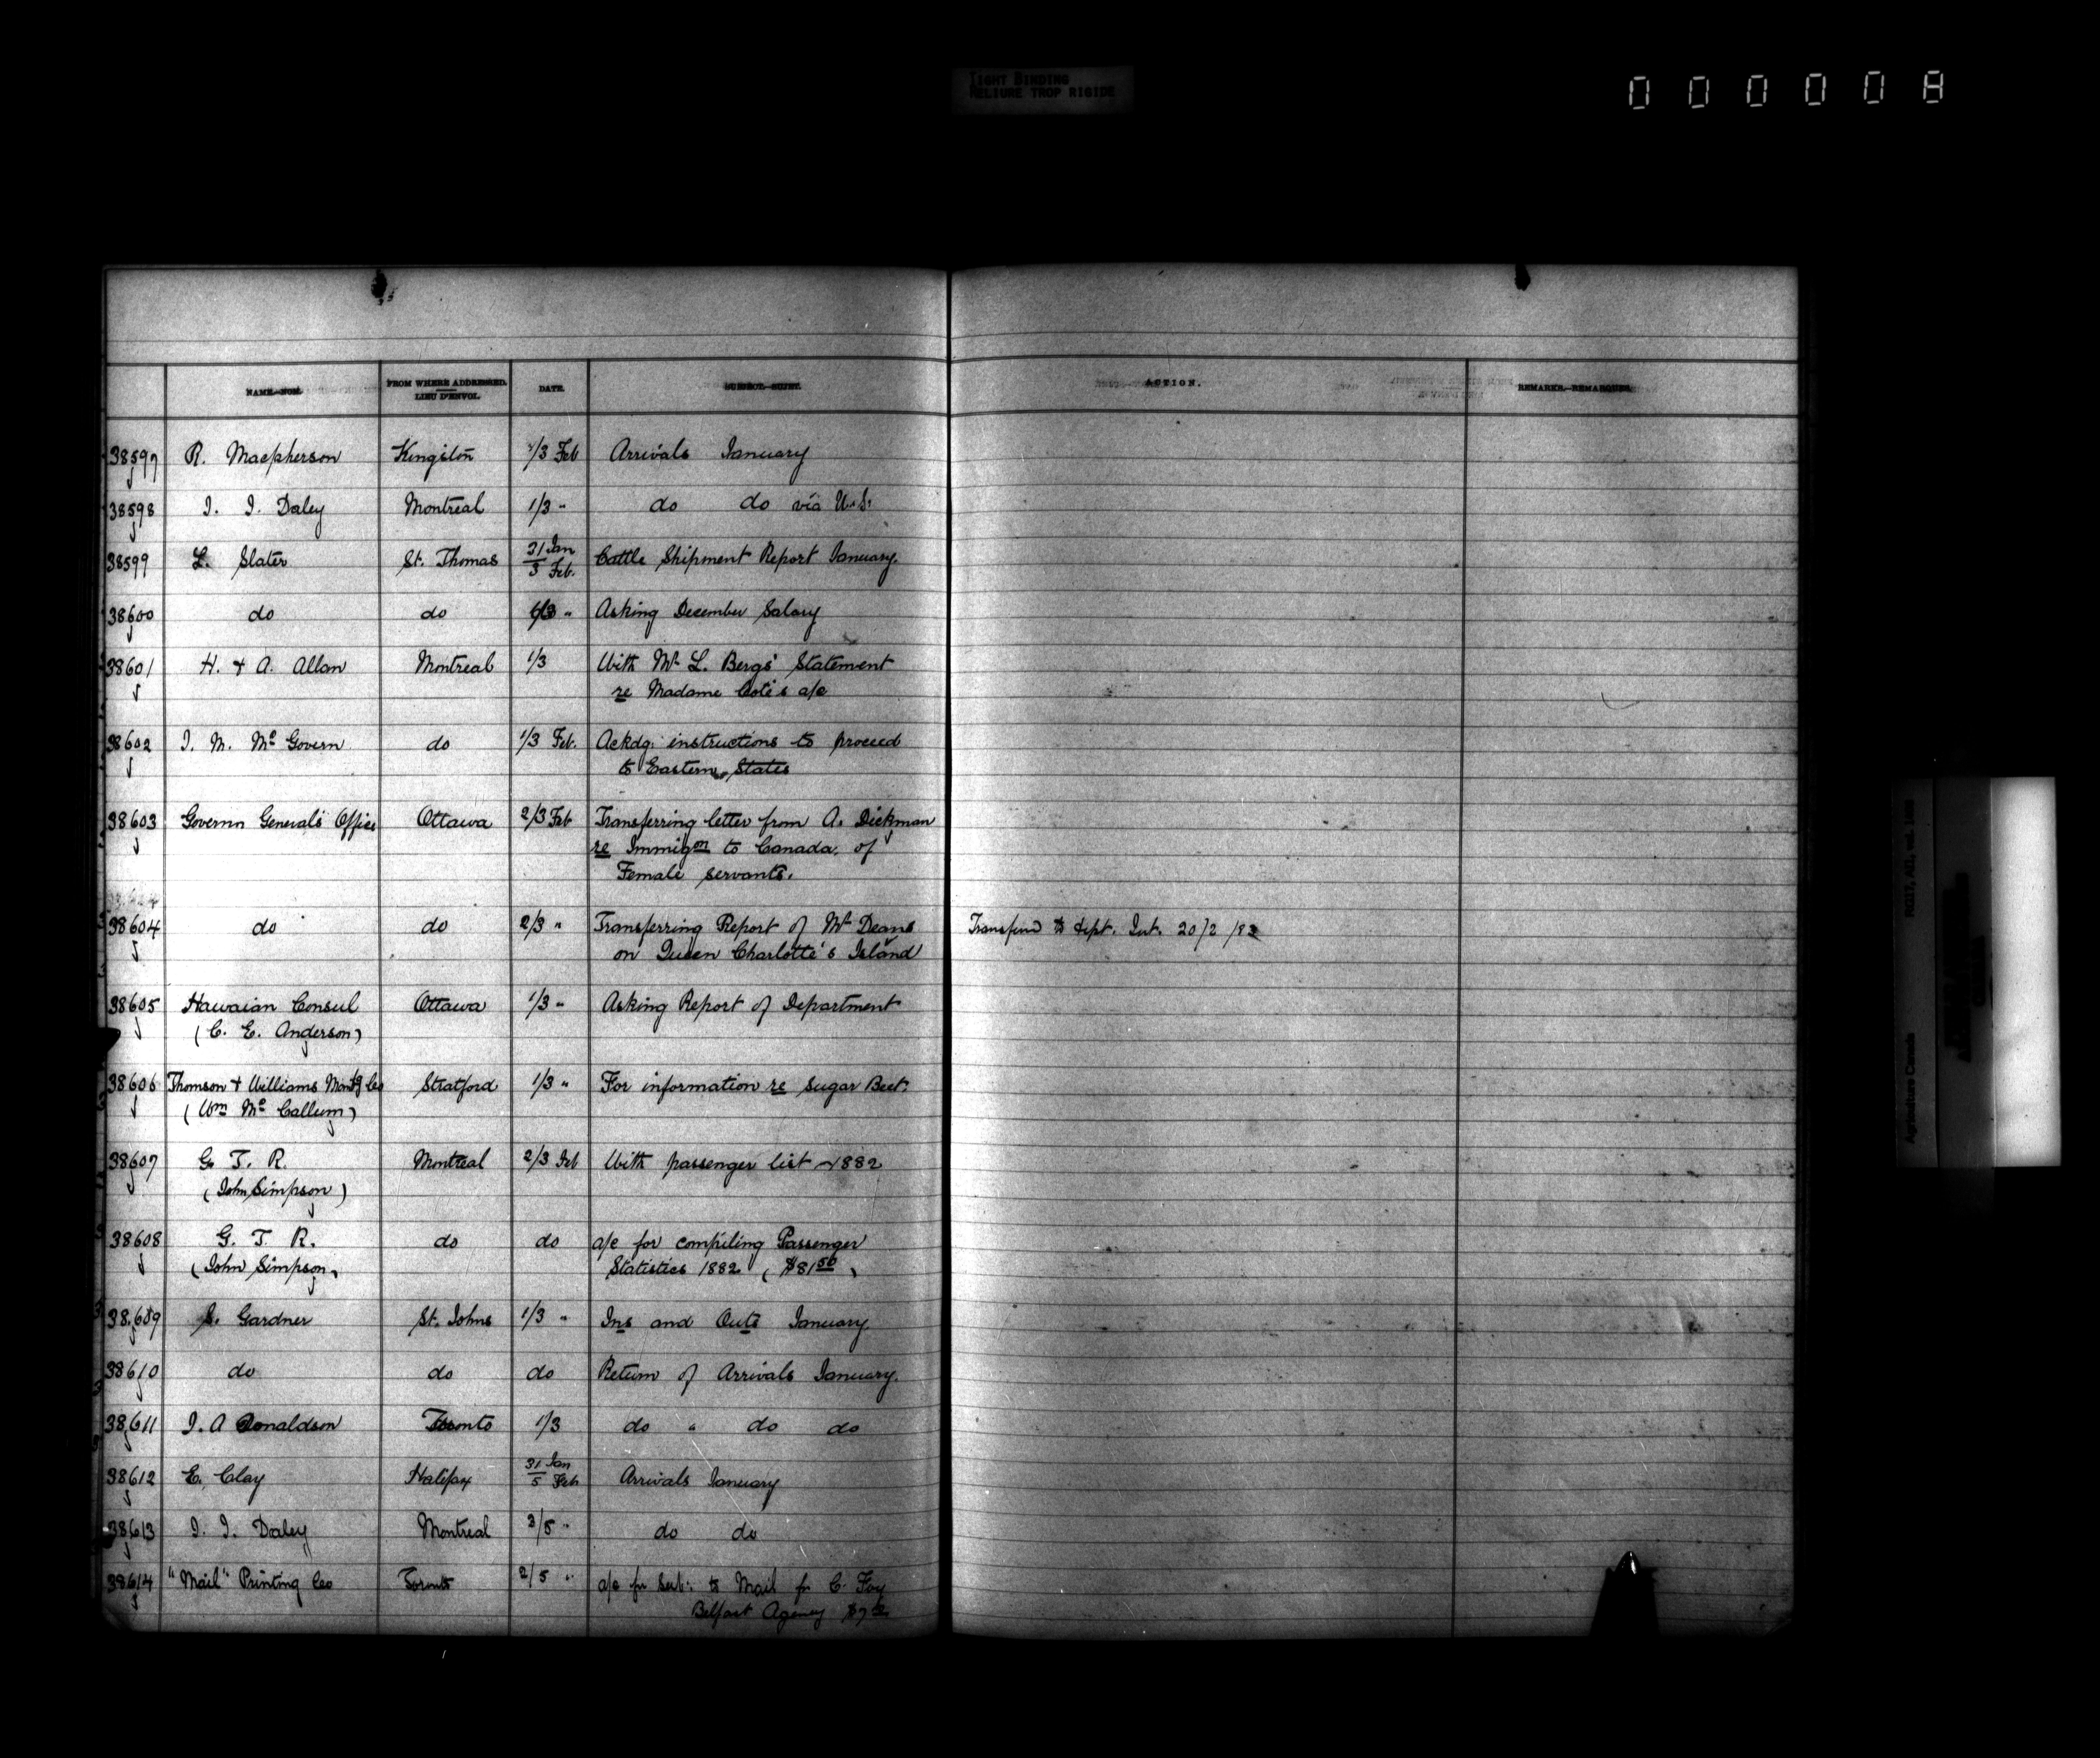 TIGHT BINDING
RELIURE TROP RIGIDE
000008
NAME.—NOM.
FROM WHERE ADDRESSED.
LIEU D'ENVOI.
DATE.
SUBJECT.—SUJET.
ACTION.
REMARKS.—REMARQUES.
38597 R. Macpherson Kingston 1/3 Feb Arrivals January
38598 J. J. Daley Montreal 1/3 " do do via U.S.
38599 L. Slater St. Thomas 31 Jan / 3 Feb. Cattle Shipment Report January.
38600 do do " Asking December Salary
38601 H. & A. Allan Montreal 1/3 With Mr L. Bergs' Statement
re Madame Coté's a/c
38602 J. M. Mc Govern do 1/3 Feb. Ackdg. instructions to proceed
to Eastern States
38603 Governor General's Office Ottawa 2/3 Feb Transferring letter from A. Dickman
re Immigon to Canada of
Female servants.
38604 do do 2/3 " Transferring Report of Mr Deans Transferred to dept. Int. 20/2/83
on Queen Charlotte's Island
38605 Hawaian Consul Ottawa 1/3 " Asking Report of Department
(C. E. Anderson)
38606 Thomson & Williams Manfg Co Stratford 1/3 " For information re Sugar Beet.
(Wm Mc Callum)
38607 G. T. R. Montreal 2/3 Feb With passenger list 1882
(John Simpson)
38608 G. T. R. do do a/c for compiling Passenger
(John Simpson) Statistics 1882 ($81 50)
38609 S. Gardner St. Johns 1/3 " Ins and Outs January.
38610 do do do Return of Arrivals January.
38611 J. A Donaldson Toronto 1/3 do " do do
38612 E. Clay Halifax 31 Jan / 5 Feb Arrivals January
38613 J. J. Daley Montreal 3/5 " do do
38614 "Mail" Printing Co Toronto 2/5 " a/c for Sub. to Mail for C. Foy
Belfast Agency
Agriculture Canada RG17, AI1, vol.